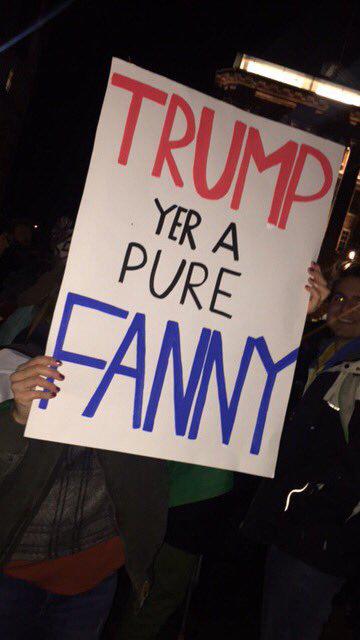 TRUMP
YER A
PURE
FANNY